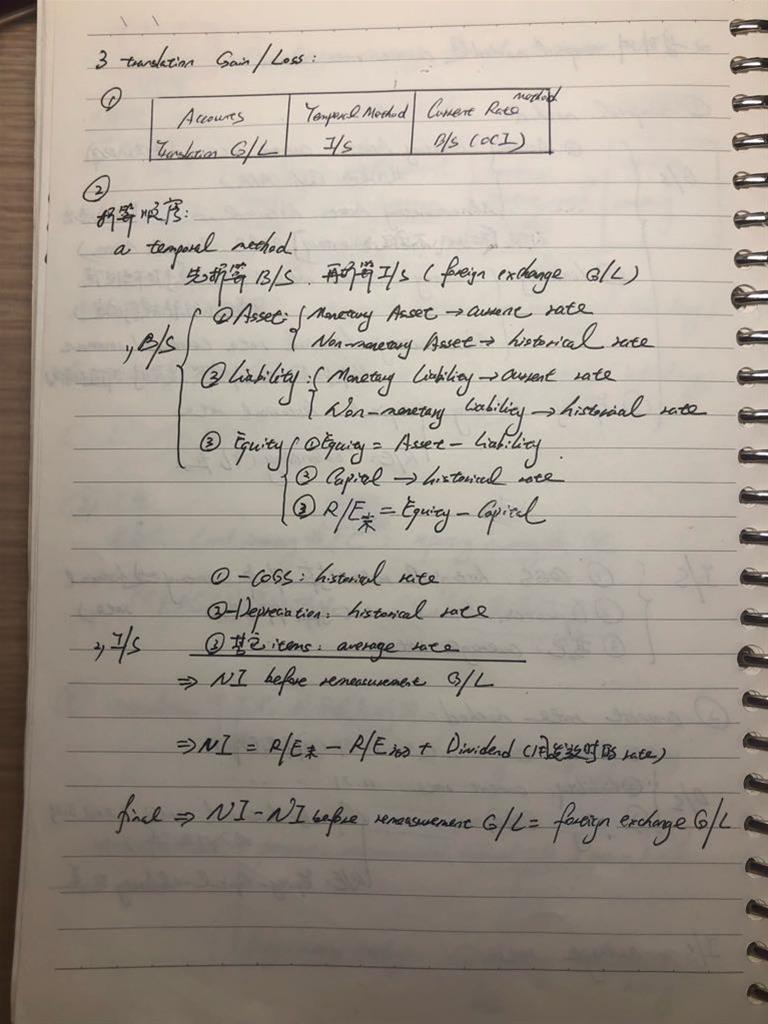 3 translation Gain/Loss:
①
Accounts | Temporal Method | Current Rate method
Translation G/L | I/S | B/S (OCI)
②
折算顺序:
a temporal method
先折算B/S. 再折算I/S (foreign exchange G/L)
1, B/S
① Asset: Monetary Asset → current rate
Non-monetary Asset → historical rate
② Liability: Monetary Liability → current rate
Non-monetary Liability → historical rate
③ Equity ① Equity = Asset - Liability
② Capital → historical rate
③ R/E末 = Equity - Capital
① -COGS: historical rate
② -Depreciation: historical rate
2, I/S ③ 其它items: average rate
⇒ NI before remeasurement G/L
⇒ NI = R/E末 - R/E初 + Dividend (用发放时的rate)
final ⇒ NI - NI before remeasurement G/L = foreign exchange G/L